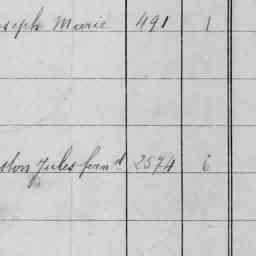 oseph Marie 491 1
ston Jules fern d 2574 6